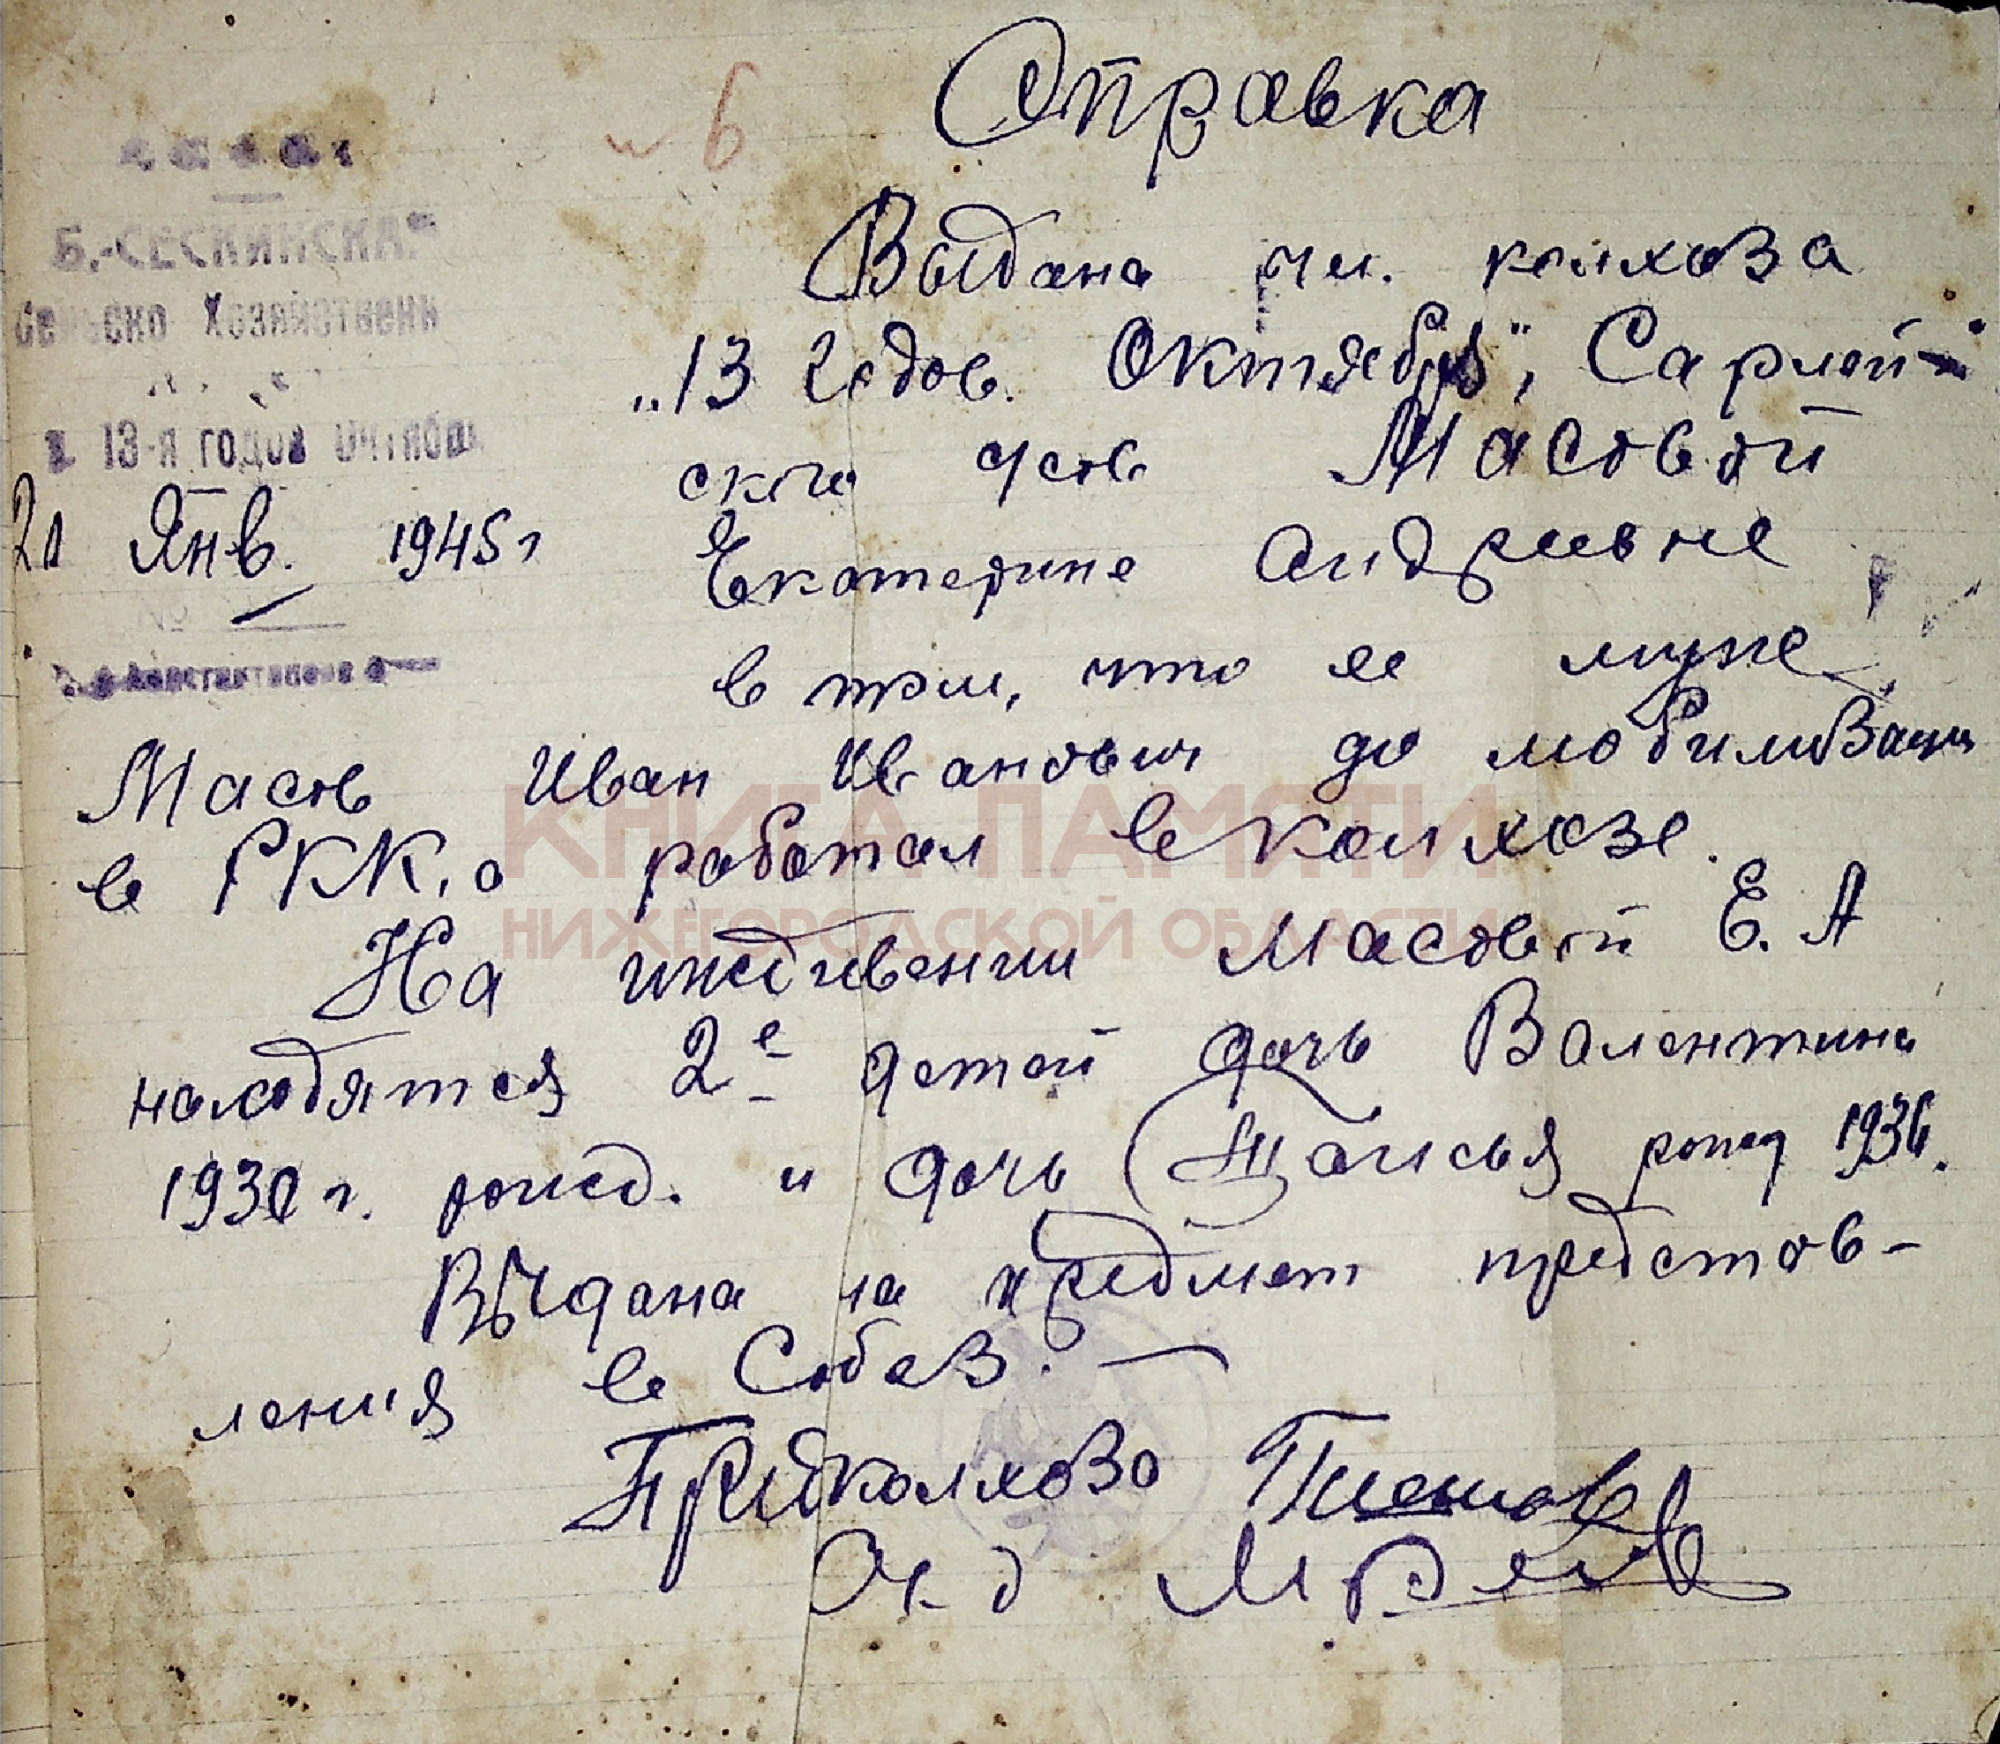 № 6
Справка
Б.-СЕСКИНСКАЯ
Сельско Хозяйственн
13-я годов Октября
21 Янв. 1945 г
Выдана чл. колхоза
„13 годов. Октября", Сарлей-
ского с/сов Масовой
Екатерине Андреевне
в том, что ее муже
Масов Иван Иванович до мобилизации
в РКК.а работал в колхозе.
На иждивении Масовой Е. А
находятся 2е детей дочь Валентина
1930 г. рожд. и дочь Таисья рожд 1936.
Выдана на предмет представ-
ления в Собез.
Предколхоза
КНИГА ПАМЯТИ
НИЖЕГОРОДСКОЙ ОБЛАСТИ